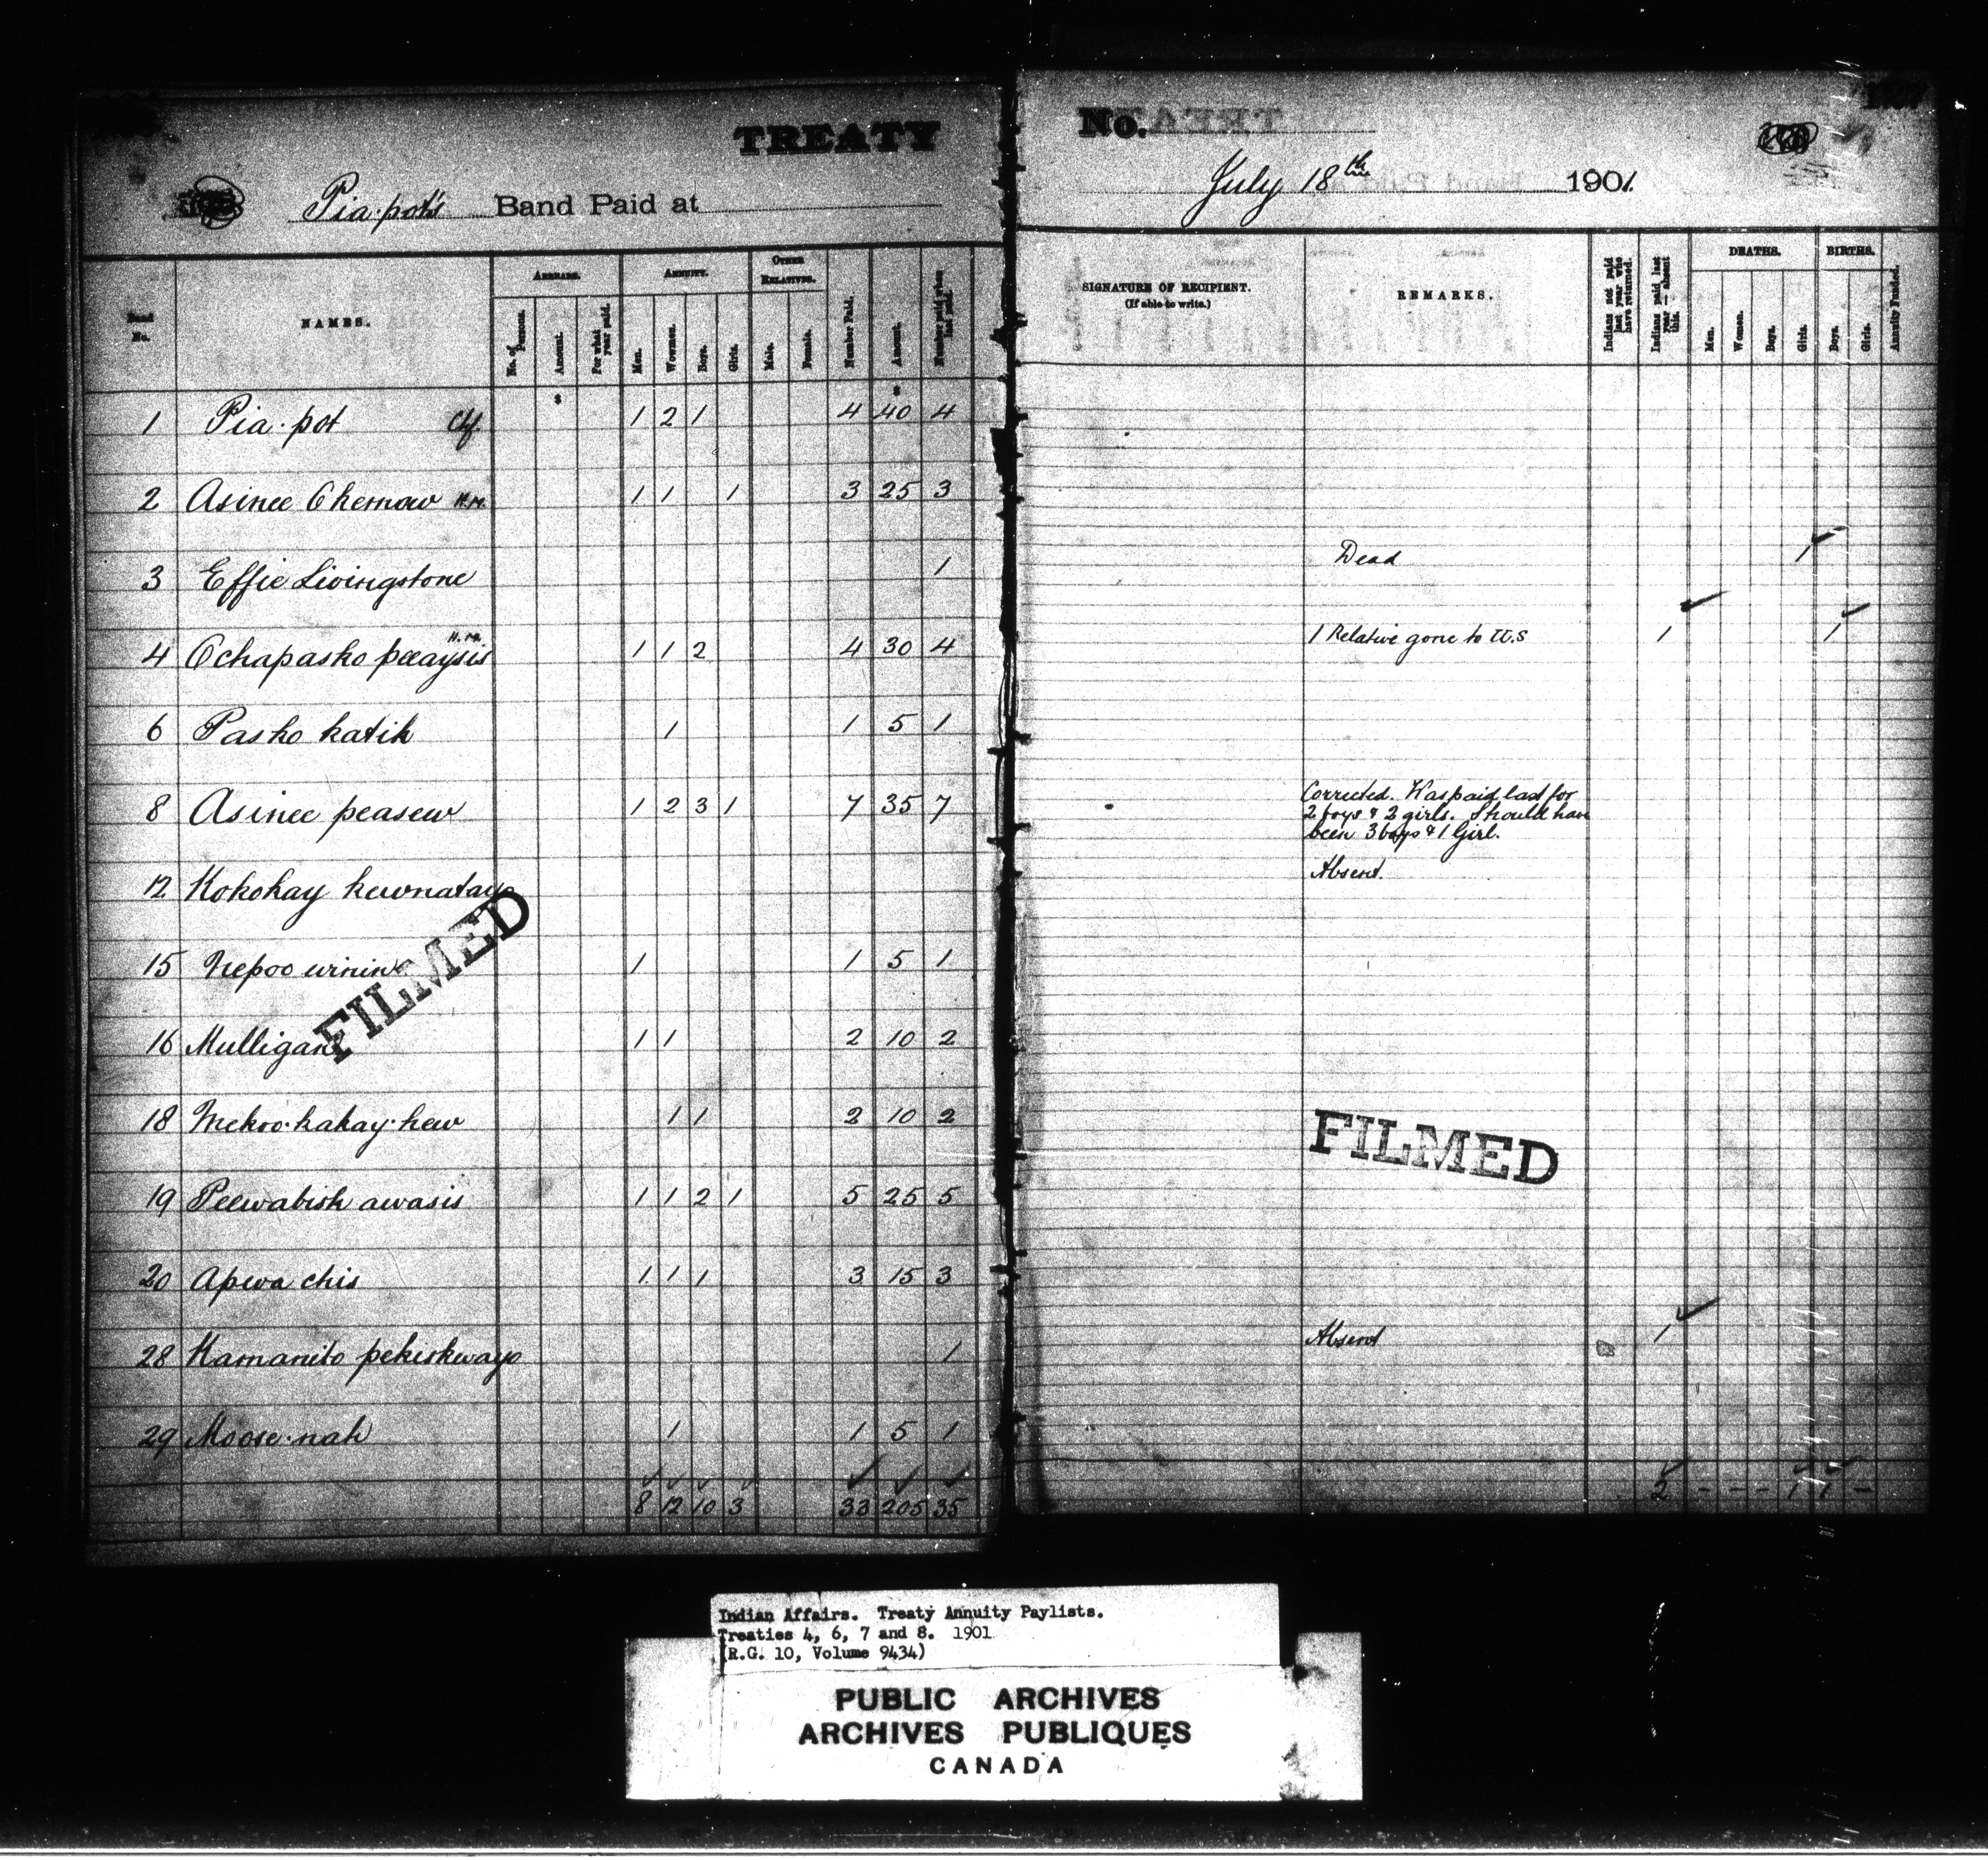 TREATY No.
Pia-pot's Band Paid at July 18th 1901.
Band No. NAMES. ARREARS. ANNUITY. OTHER RELATIVES. Number Paid. Amount. Number paid when last paid.
No. of Persons. Amount. For what year paid. Men. Women. Boys. Girls. Male. Female.
SIGNATURE OF RECIPIENT. (If able to write.) REMARKS. Indians not paid last year who have returned. Indians paid last year — absent this. DEATHS. BIRTHS. Annuity Funded.
Men. Women. Boys. Girls. Boys. Girls.
$ $
1 Pia-pot Chf. 1 2 1 4 40 4
2 Asinee Okemow H.M. 1 1 1 3 25 3
3 Effie Livingstone 1 Dead 1
4 Ochapasho peeaysis H.M. 1 1 2 4 30 4 1 Relative gone to U.S 1 1
6 Pasko katik 1 1 5 1
8 Asinee peasew 1 2 3 1 7 35 7 Corrected. Was paid last for
2 boys & 2 girls. Should have
been 3 boys & 1 Girl.
12 Kokohay kewnatayo Absent.
15 Nepoo winin 1 1 5 1
16 Mulligan 1 1 2 10 2
18 Mekoo-kakay-kew 1 1 2 10 2
19 Peewabish awasis 1 1 2 1 5 25 5
20 Apwa chis 1 1 1 3 15 3
28 Kamanito pekiskwayo 1 Absent 1
29 Moose-nah 1 1 5 1
8 12 10 3 33 205 35 2 - - - 1 1 -
FILMED
FILMED
Indian Affairs. Treaty Annuity Paylists.
Treaties 4, 6, 7 and 8. 1901
(R.G. 10, Volume 9434)
PUBLIC ARCHIVES
ARCHIVES PUBLIQUES
CANADA